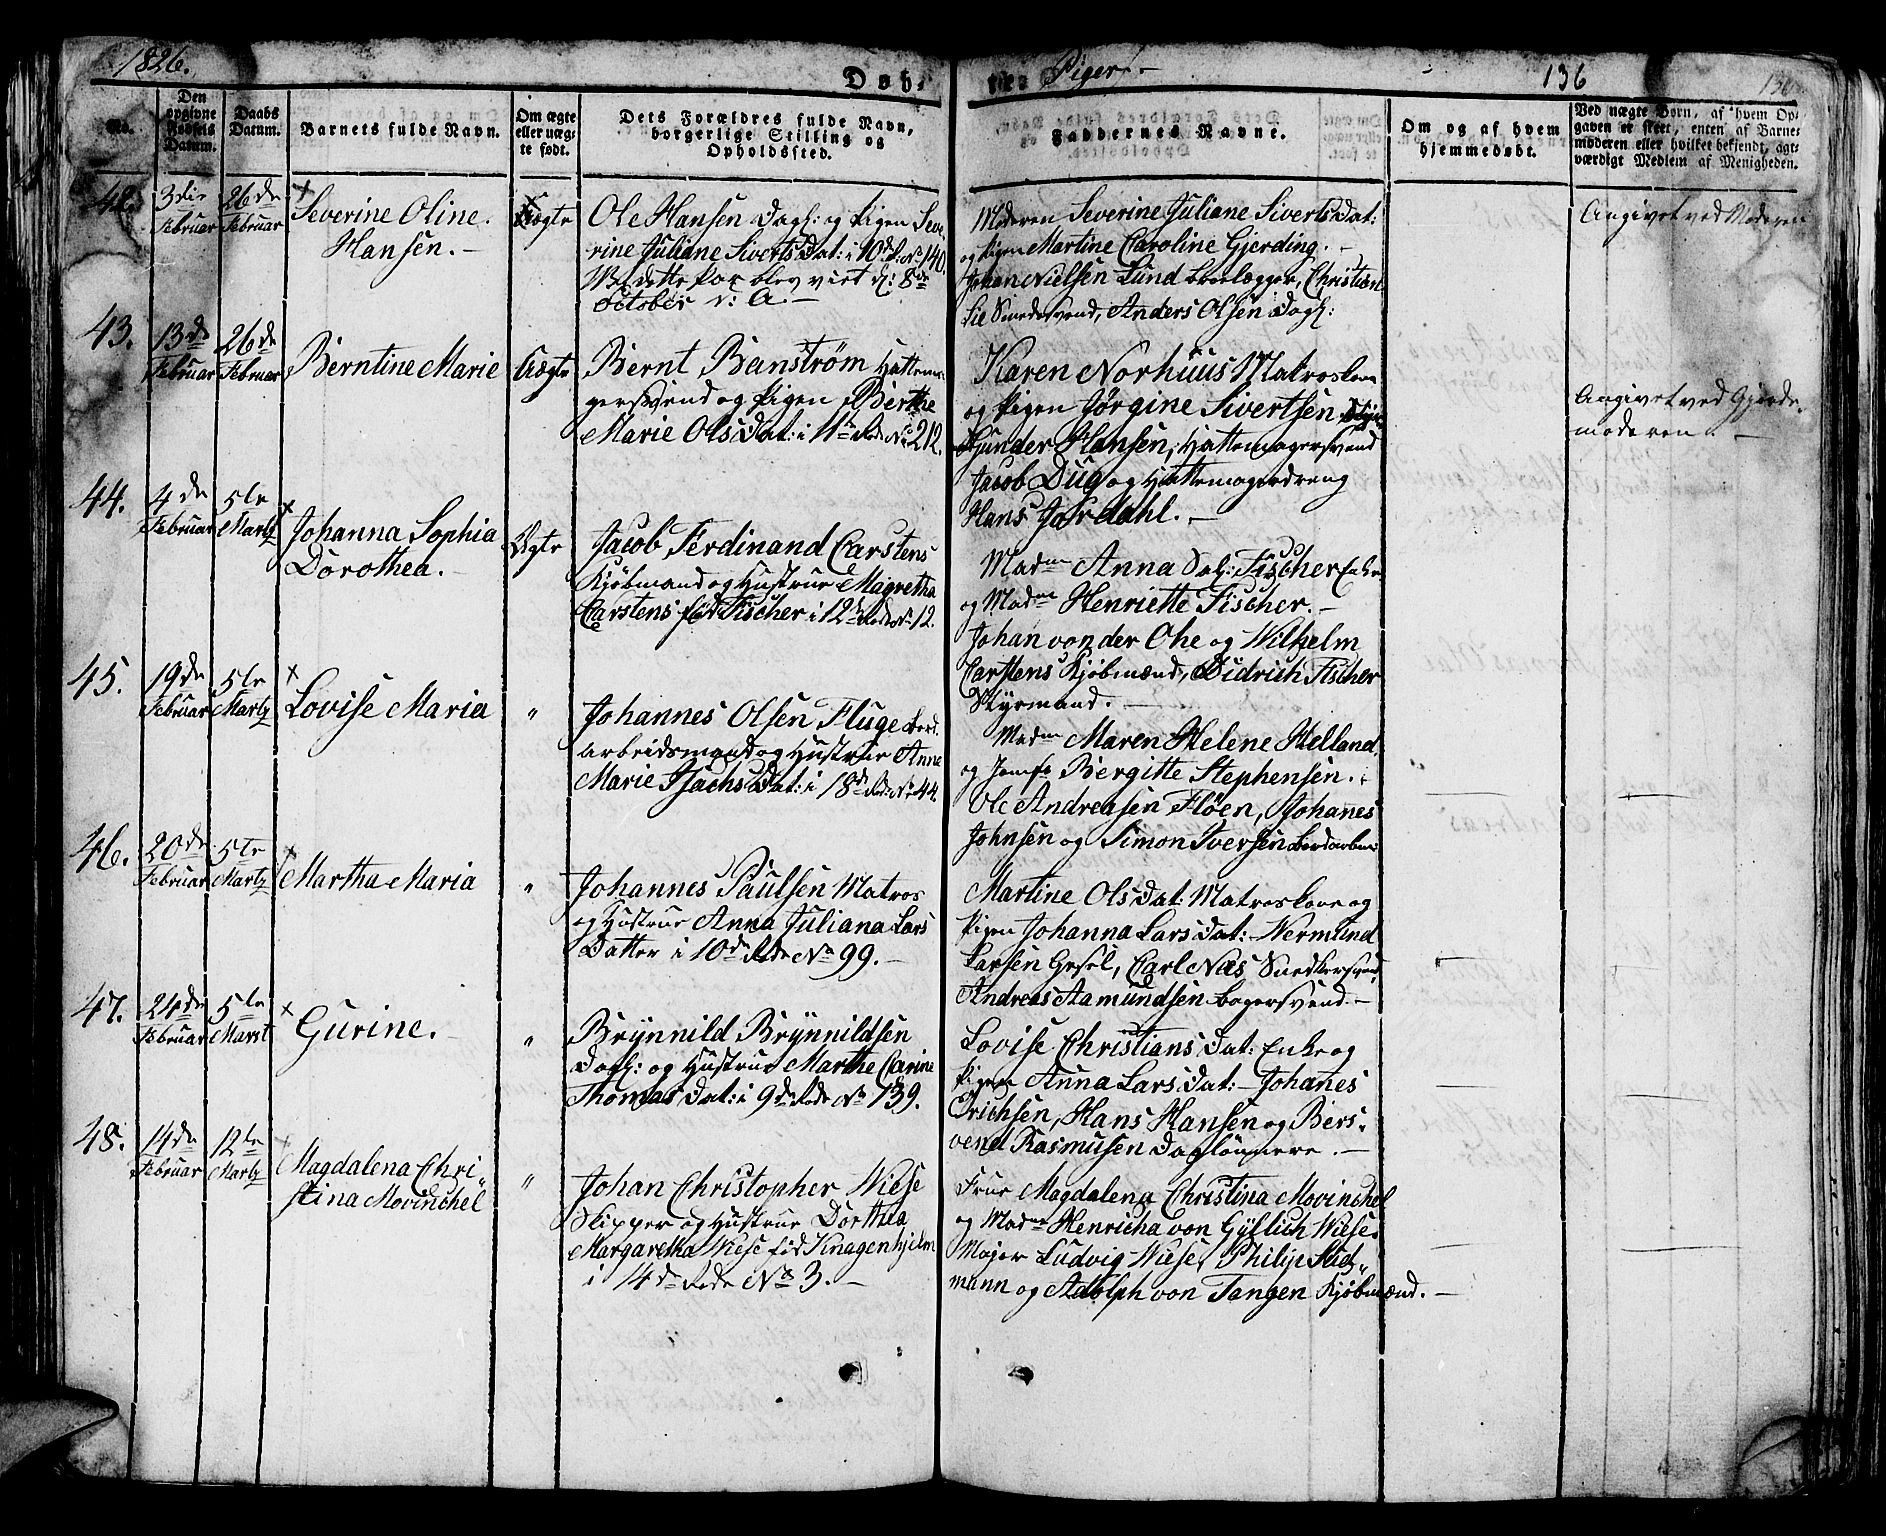 1826.
Døb-
te Piger.
136
136
No.
Den opgivne Fødsels Datum.
Daabs Datum.
Barnets fulde Navn.
Om ægte eller uægte født.
Dets Forældres fulde Navn, borgerlige Stilling og Opholdssted.
Faddernes Navne.
Om og af hvem hjemmedøbt.
Ved uægte Børn, af hvem Opgaven er skeet, enten af Barnemoderen eller hvilket bekjendt, agtværdigt Medlem af Menigheden.
42.
3die Februar
26de Februar
Severine Oline
Hansen.
Uægte
Ole Hansen Dagl: og Pigen Seve-
rine Juliane Siverts Dat: i 10de R: No 140.
October d: A.
Moderen Severine Juliane Siverts Dat:
og Pigen Martine Caroline Gjerding.
Johan Nielsen Lund Brolægger, Christian
Lie Smedesvend, Anders Olsen Dagl:
Angivet ved Moderen
43.
13de Februar
26de Februar
Berntine Marie
Uægte
Bernt Banstrøm Hattema-
gersvend og Pigen Berthe
Marie Ols Dat: i 11te Rode No 212.
Karen Norhuus Matroskone
og Pigen Jørgine Sivertsen
Gunder Hansen, Hattemagersvend
Jacob Dug og Hattemagerdreng
Hans Jordahl.
Angivet ved Gjorde-
moderen.
44.
4de Februar
5te Martz
Johanna Sophia
Dorothea.
Ægte
Jacob Ferdinand Carstens
Kjøbmand og Hustrue Magretha
Carstens fød Fischer i 12te Rode No 12.
Madme Anna Fischer Enke
og Madme Henriette Fischer.
Johan von der Ohe og Wilhelm
Carstens Kjøbmænd, Didrich Fischer
Styrmand.
45.
19de Februar
5te Martz
Lovise Maria
"
Johannes Olsen Fluge Bord-
arbeidsmand og Hustrue Anne
Marie Isachs Dat: i 18de Rod: No 44.
Madme Maren Helene Helland
og Jomfr Bergitte Stephensen.
Ole Andreasen Fløen, Johanes
Johnsen og Simon Iversen Bordarbm:
46.
20de Februar
5te Martz
Martha Maria
"
Johannes Paulsen Matros
og Hustrue Anna Juliana Lars
Datter i 10de Rode No 99.
Martine Ols Dat: Matroskone og
Pigen Johanna Lars Dat: Nermund
Larsen Gesel, Carl Næs Snedkersvend
Andreas Aamundsen Bagersvend.
47.
24de Februar
5te Marst
Gurine.
"
Brynnild Brynnildsen
Dagl: og Hustrue Marthe Carine
Thomas Dat: i 9de Rode No 139.
Lovise Christians Dat: Enke og
Pigen Anna Lars Dat: Johanes
Erichsen, Hans Hansen og Bers-
vend Rasmusen Daglønnere.
48.
14de Februar
12te Martz
Magdalena Chri-
stina Movinchel
"
Johan Christopher Wiese
Skipper og Hustrue Dorthea
Margaretha Wiese fød Knagenhjelm
i 14de Rode No 3.
Frue Magdalena Christina Movinchel
og Madme Henricha von Gyllich Wiese.
Major Ludvig Wiese, Philip
mann og Adolph von Tangen Kjøbmænd.